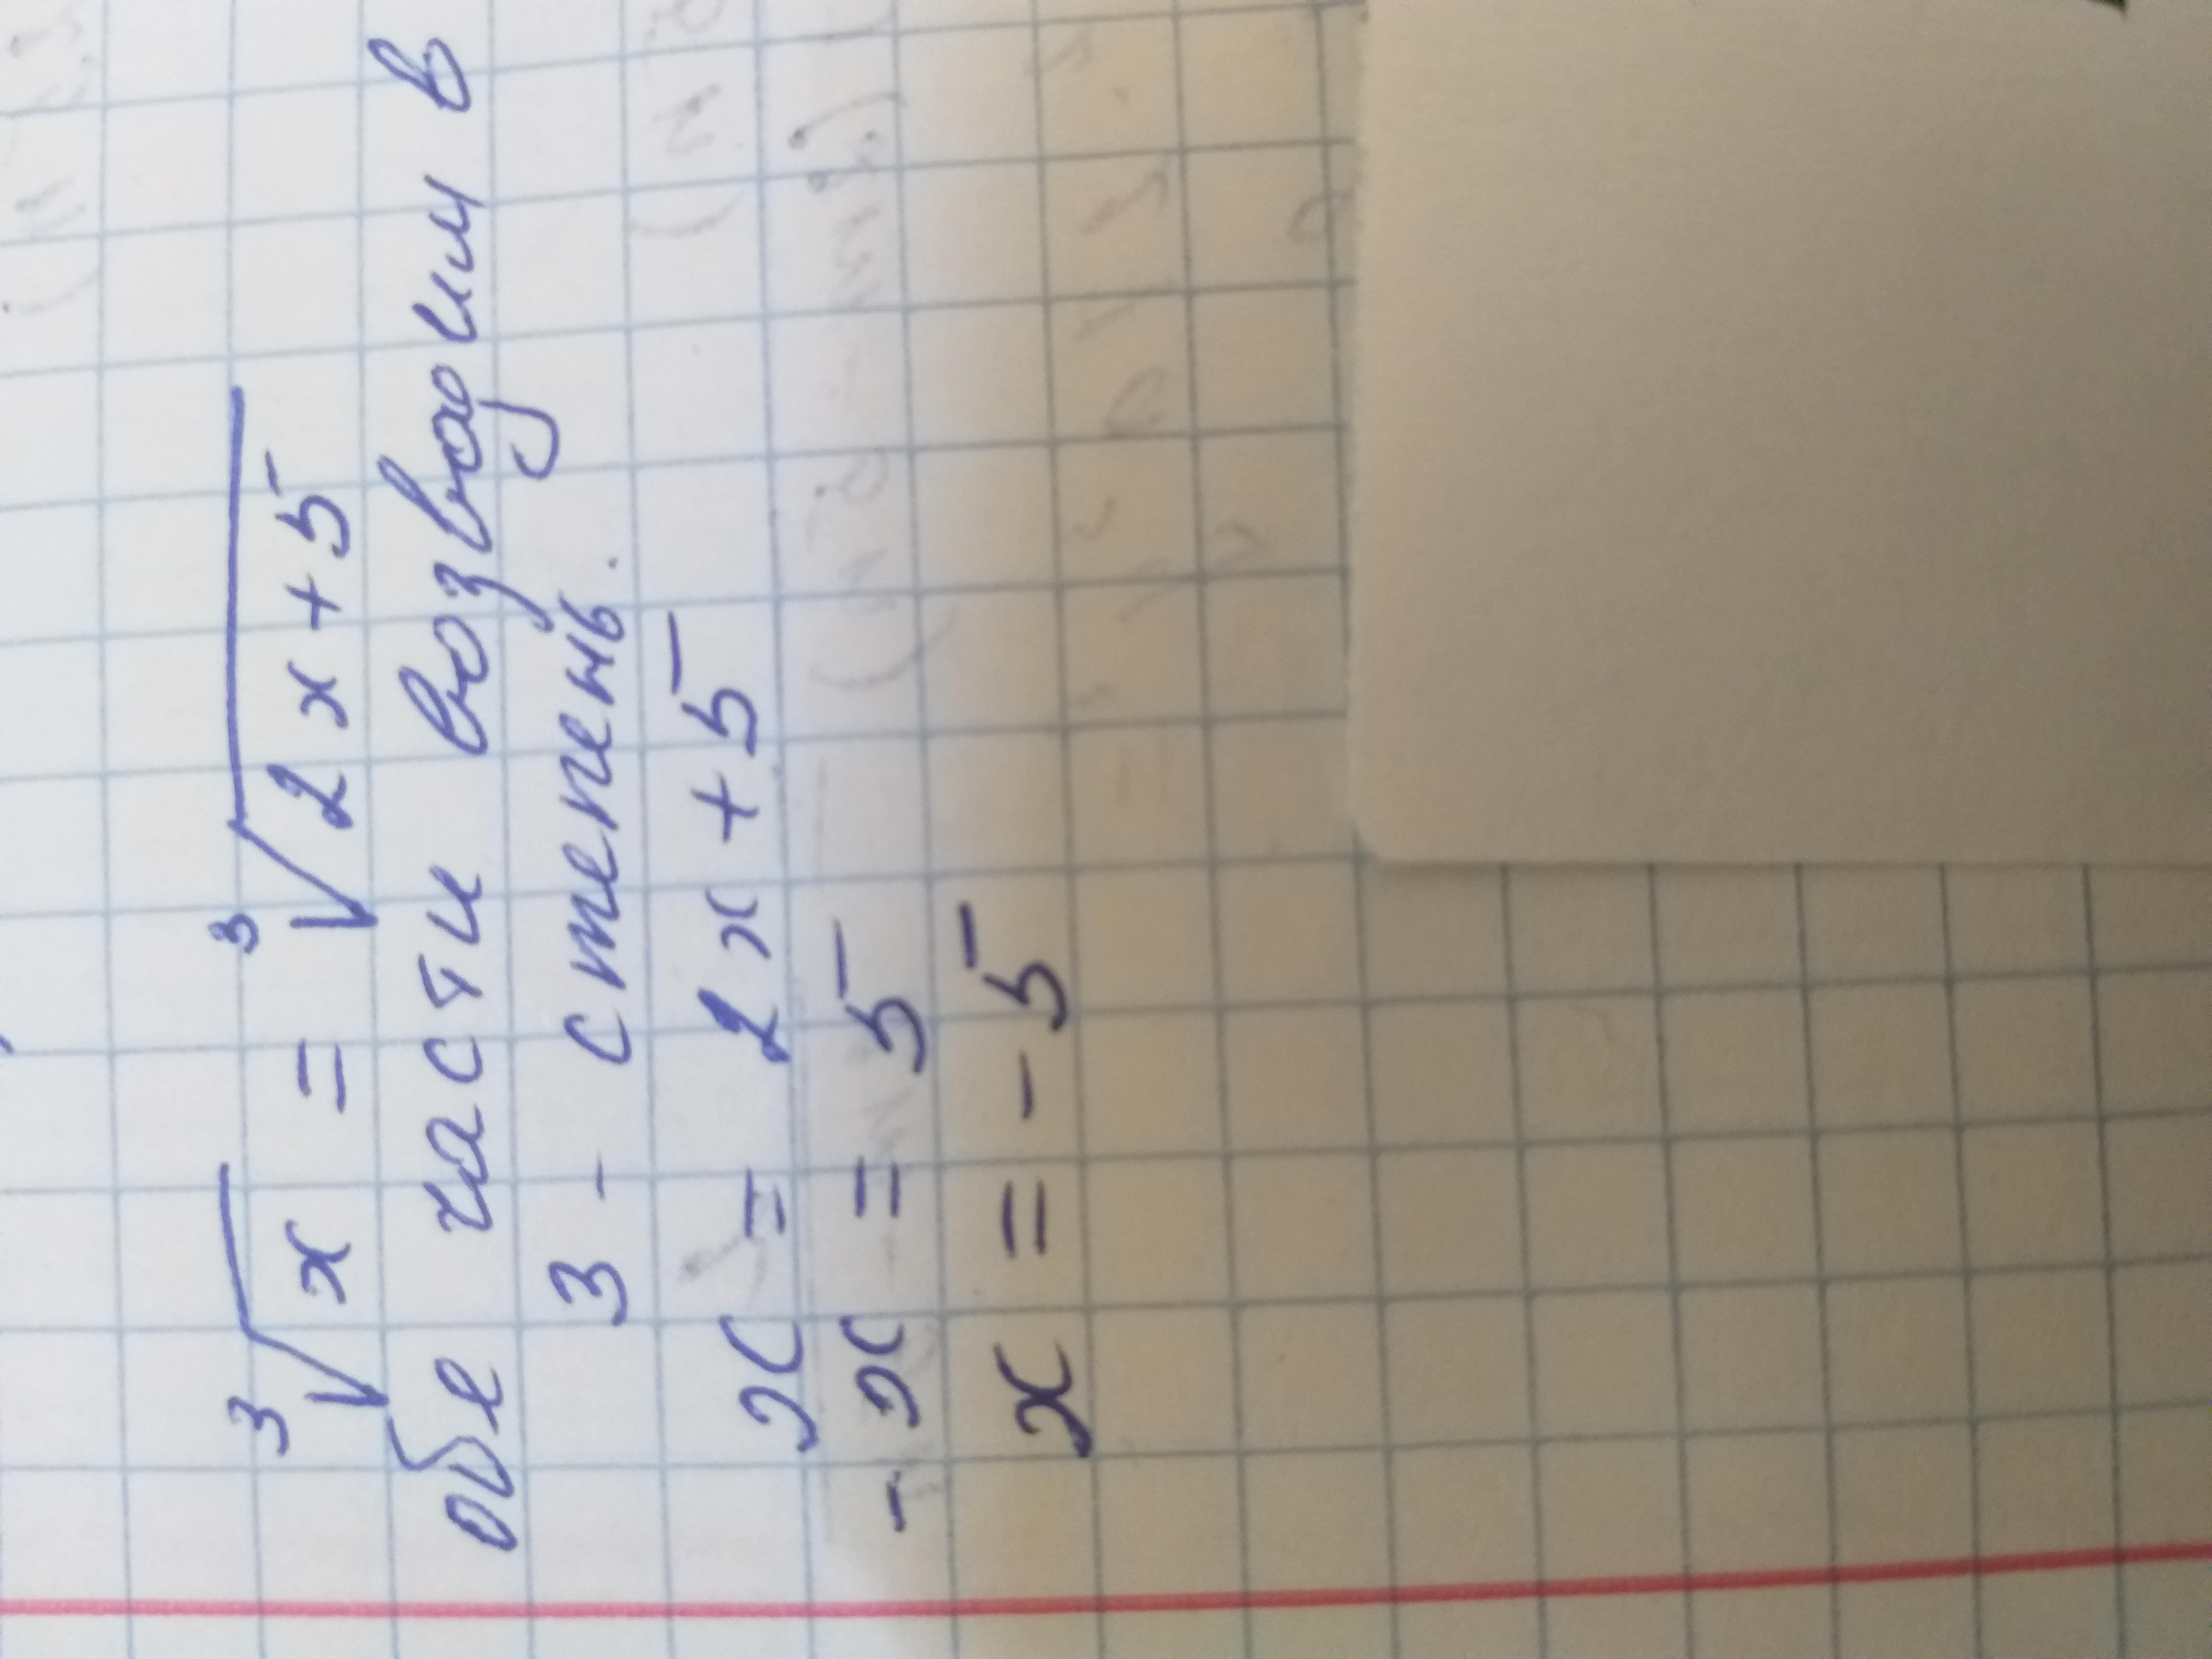 ∛x = ∛2x+5
обе части возводим в
3 - степень.
x = 2x+5
-x = 5
x = -5